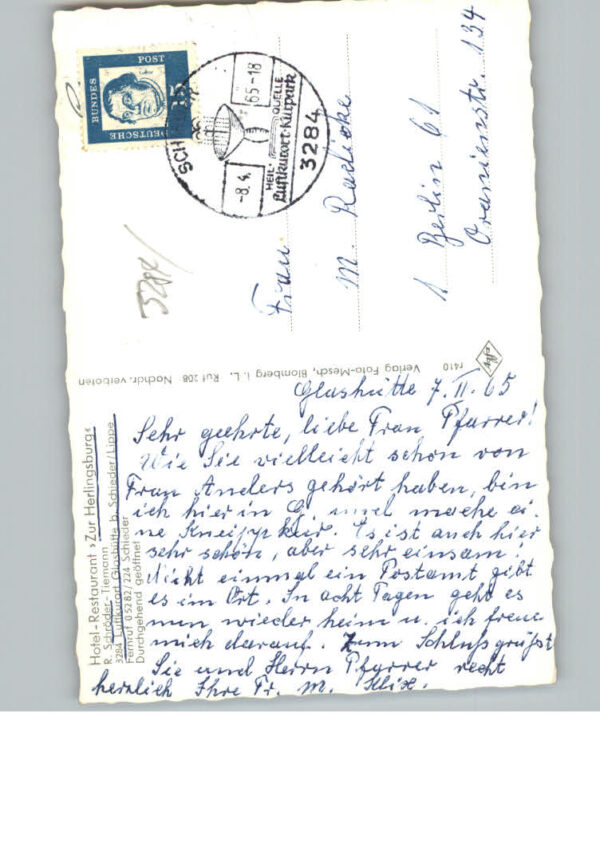 DEUTSCHE
BUNDES
POST
-8.4.
65-18
HEIL-
QUELLE
Luftkurort · Kurpark
3284
3284
Frau
M. Radicke
1 Berlin 61
Oranienstr. 134
Verlag Foto-Mesch, Blomberg i. L. Ruf 208 Nachdr. verboten
r410
Hotel-Restaurant »Zur Herlingsburg«
R. Schröder-Tiemann
3284 Luftkurort Glashütte b. Schieder/Lippe
Fernruf 05282/224 Schieder
Durchgehend geöffnet
Glashütte 7. II. 65
Sehr geehrte, liebe Frau Pfarrer!
Wie Sie vielleicht schon von
Frau Anders gehört haben, bin
ich hier in Gl. und mache ei-
ne Kneippkur. Es ist auch hier
sehr schön, aber sehr einsam!
Nicht einmal ein Postamt gibt
es im Ort. In acht Tagen geht es
nun wieder heim u. ich freue
mich darauf. Zum Schluß grüßt
Sie und Herrn Pfarrer recht
herzlich Ihre Fr. M.